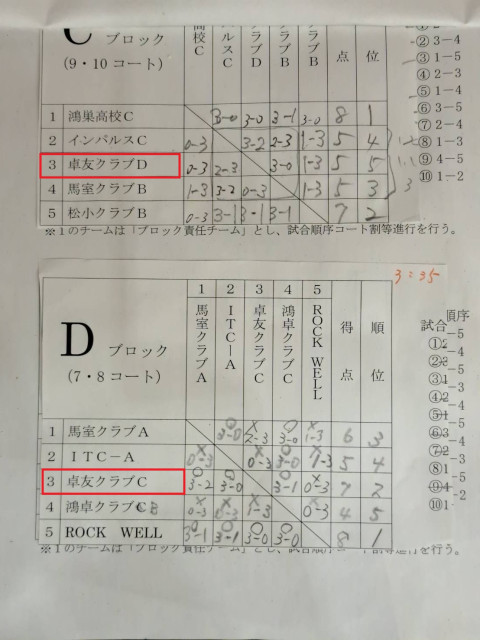 C ブロック
(9・10コート)
高校C
パルスC
クラブD
クラブB
クラブB
点
位
② 3－4
③ 1－5
④ 2－3
⑤ 1－4
⑥ 3－5
⑦ 2－4
⑧ 1－3
⑨ 4－5
⑩ 1－2
1 鴻巣高校C 3-0 3-0 3-1 3-0 8 1
2 インパルスC 0-3 3-2 2-3 1-3 5 4
3 卓友クラブD 0-3 2-3 3-0 1-3 5 5
4 馬室クラブB 1-3 3-2 0-3 1-3 5 3
5 松小クラブB 0-3 3-1 3-1 3-1 7 2
※1のチームは「ブロック責任チーム」とし、試合順序コート割等進行を行う。
3:35
D ブロック
(7・8コート)
1 馬室クラブA
2 ITC－A
3 卓友クラブC
4 鴻卓クラブC
5 ROCK WELL
得点
順位
試合順序
1 馬室クラブA 3-0 2-3 3-0 1-3 6 3
2 ITC－A 0-3 0-3 3-0 1-3 5 4
3 卓友クラブC 3-2 3-0 3-1 0-3 7 2
4 鴻卓クラブCB 0-3 0-3 1-3 0-3 4 5
5 ROCK WELL 3-1 3-1 3-0 3-0 8 1
※1のチームは「ブロック責任チーム」とし、試合順序コート割等進行を行う。